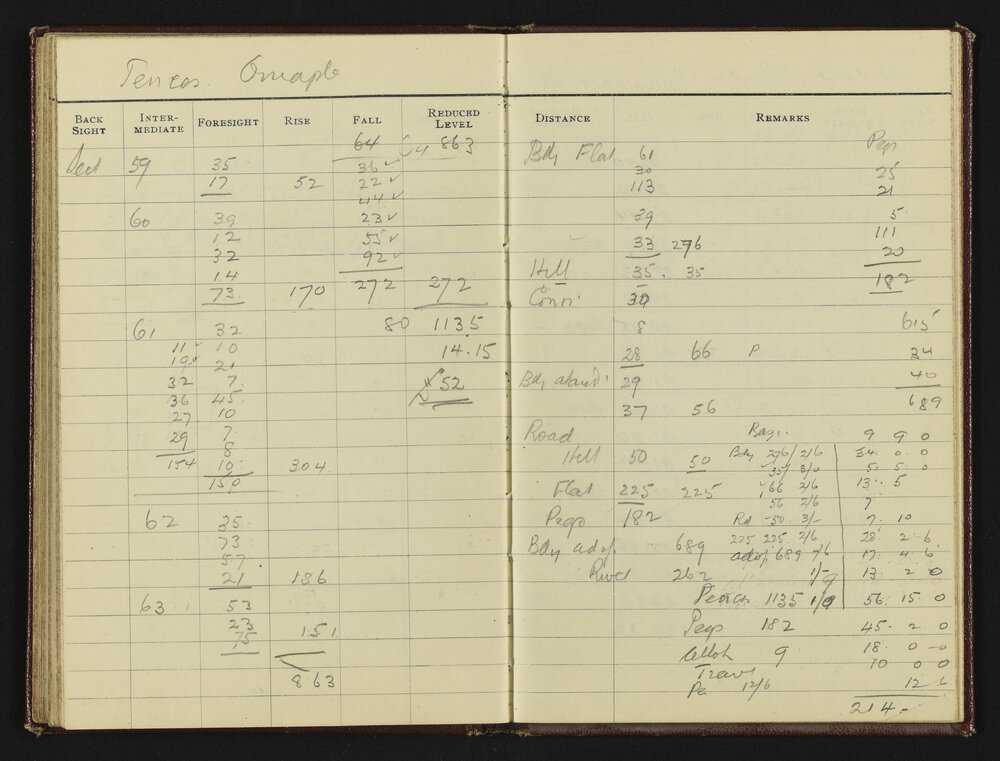 BACK SIGHT INTER-MEDIATE FORESIGHT RISE FALL REDUCED LEVEL
64 863
59 35 36
17 52 22
44
60 39 23
12 55
32 92
14
73 170 272 272
61 32 80 1135
11 10 14.15
19 21
32 7 52
36 45
27 10
29 7
8
154 10 304
150
62 35
73
57
21 186
63 53
23
75 151
863
DISTANCE REMARKS
Bdy Flat 61 Pegs
30 25
113 21
39 5
33 276 111
20
Hill 35 35 182
Conn 30
8 615
28 66 P 34
Bdy 29 40
37 56 689
Road 9 9 0
Hill 50 50 Bdy 276/ 2/6 34 0 0
35/ 3/0 5 5 0
Flat 225 225 66 2/6 13 5
56 2/6 7
Pegs 182 Rd 50 3/- 7 10
225 225 2/6 28 2 6
Bdy adop 689 adop 689 17 4 6
River 262 1/- 13 2 0
1135 1/0 56 15 0
Pegs 182 45 2 0
9 18 0 0
Trav 10 0 0
12/6 12 6
214